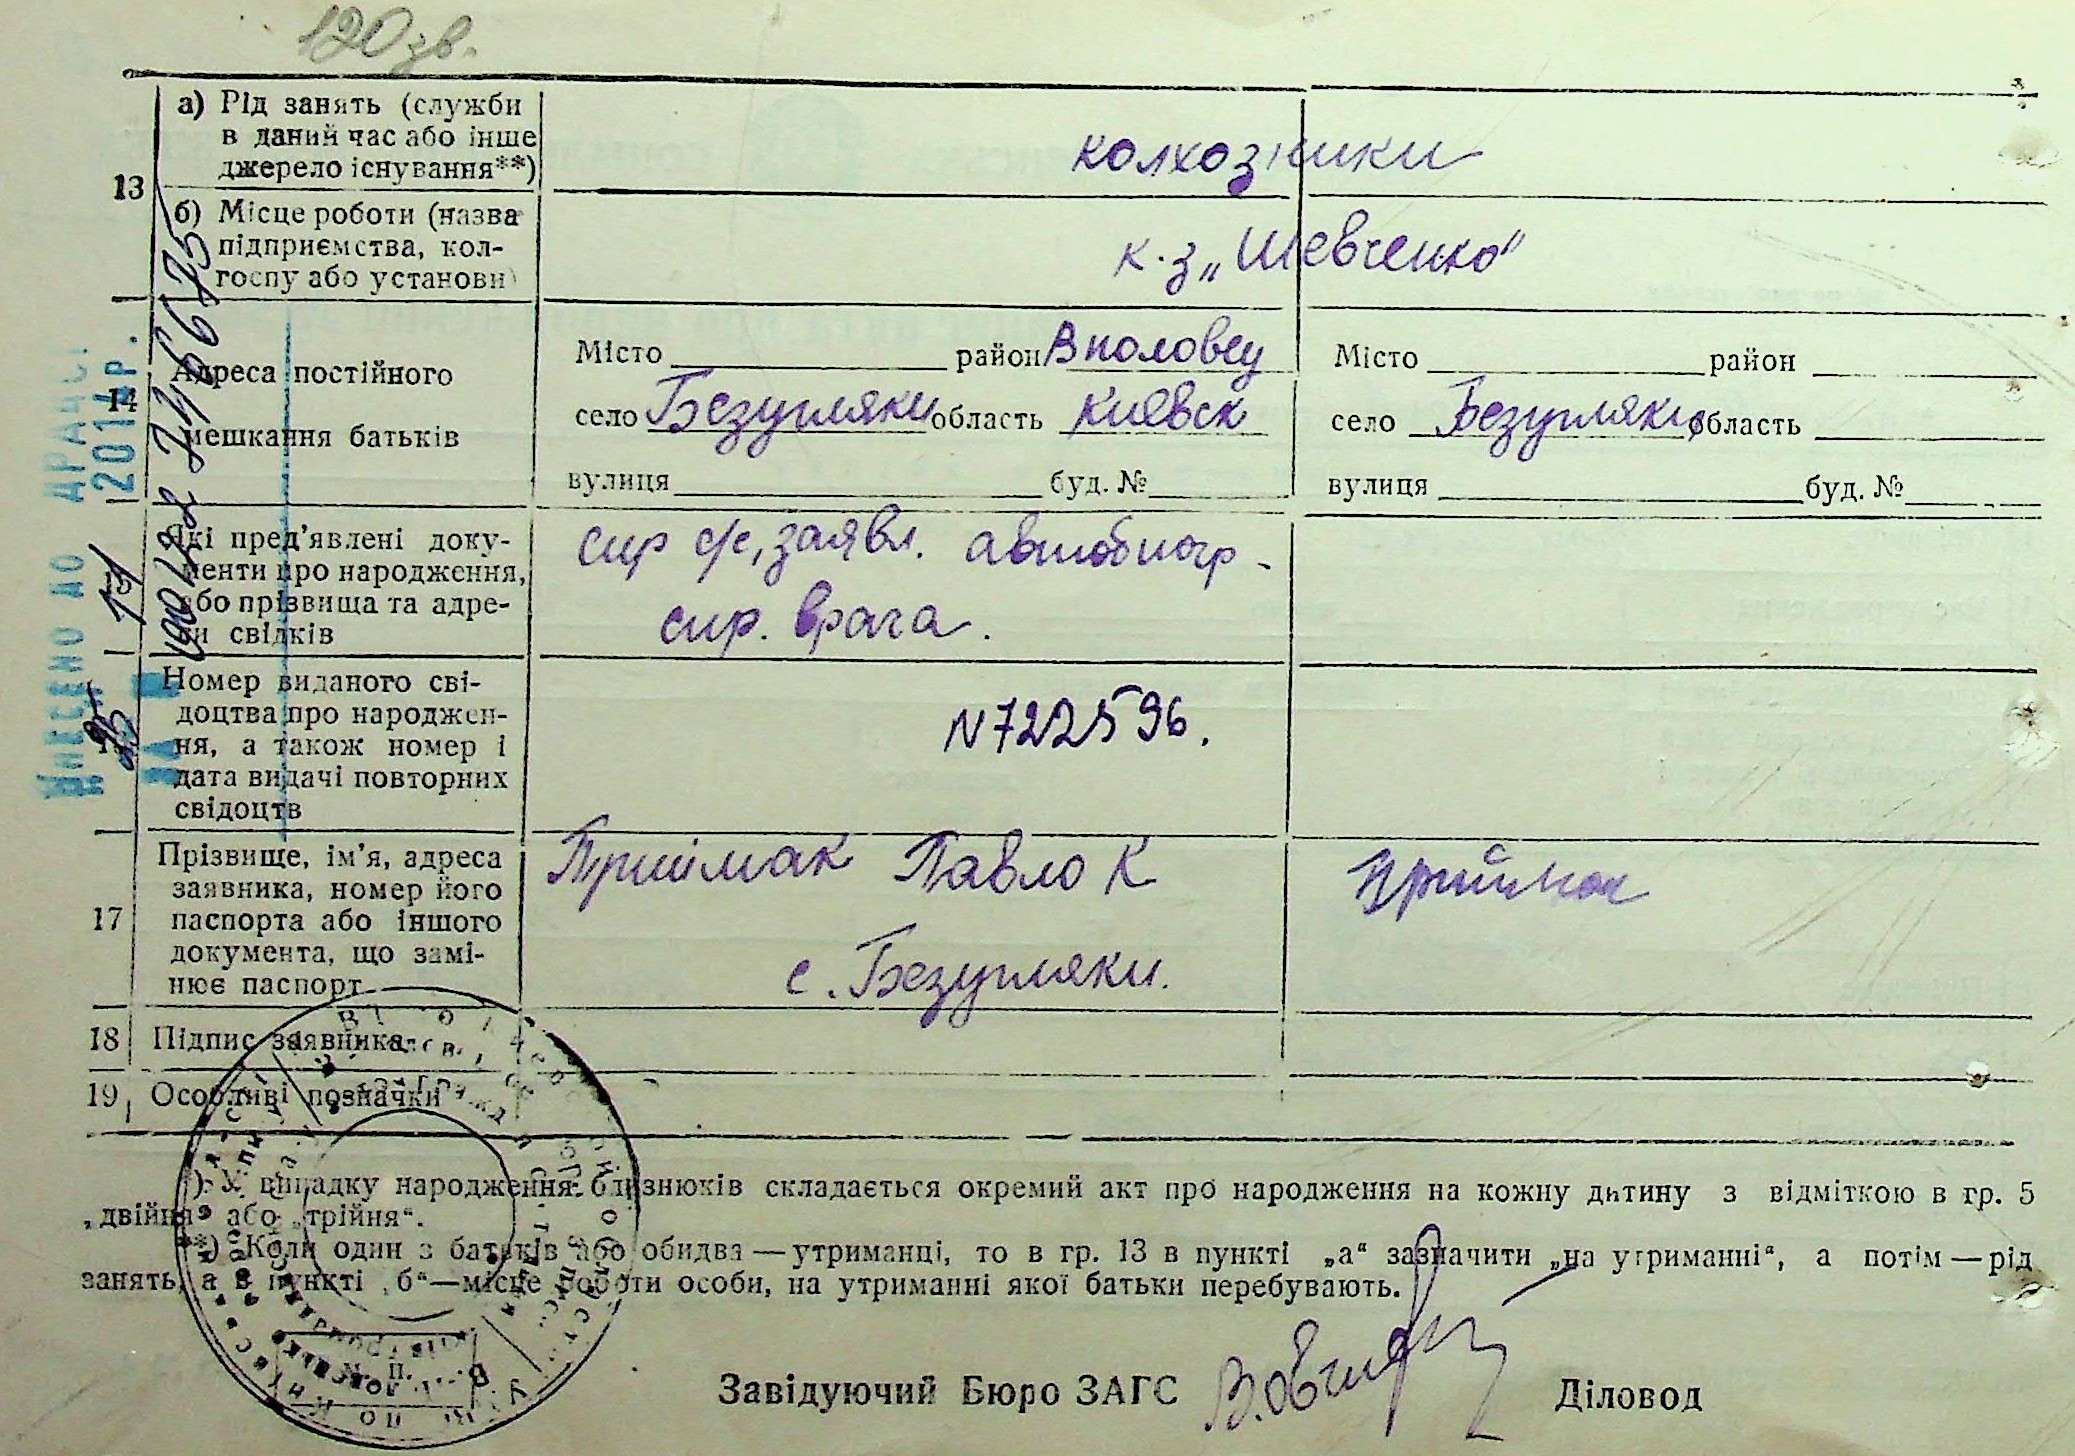 120 зв.
13
а) Рід занять (служби
в даний час або інше
джерело існування**)
колхозники
б) Місце роботи (назва
підприємства, кол-
госпу або установи)
к-з „Шевченко“
14
Адреса постійного
мешкання батьків
Місто район Вполовец
село Безугляки область Киевск
вулиця буд. №
Місто район
село Безугляки область
вулиця буд. №
Які пред'явлені доку-
менти про народження,
або прізвища та адре-
си свідків
спр с/с, заявл. автобиогр-
спр. врача.
Номер виданого сві-
доцтва про народжен-
ня, а також номер і
дата видачі повторних
свідоцтв
N 722596.
17
Прізвище, ім'я, адреса
заявника, номер його
паспорта або іншого
документа, що замі-
нює паспорт
Приймак Павло К
с. Безугляки.
Приймак
18 Підпис заявника
19 Особливі позначки
*) У випадку народження близнюків складається окремий акт про народження на кожну дитину з відміткою в гр. 5
„двійня“ або „трійня“.
**) Коли один з батьків або обидва — утриманці, то в гр. 13 в пункті „а“ зазначити „на утриманні“, а потім — рід
занять, а в пункті „б“ — місце роботи особи, на утриманні якої батьки перебувають.
М. П.
Завідуючий Бюро ЗАГС
Діловод
ВНЕСЕНО ДО ДРАЦС
201 р.